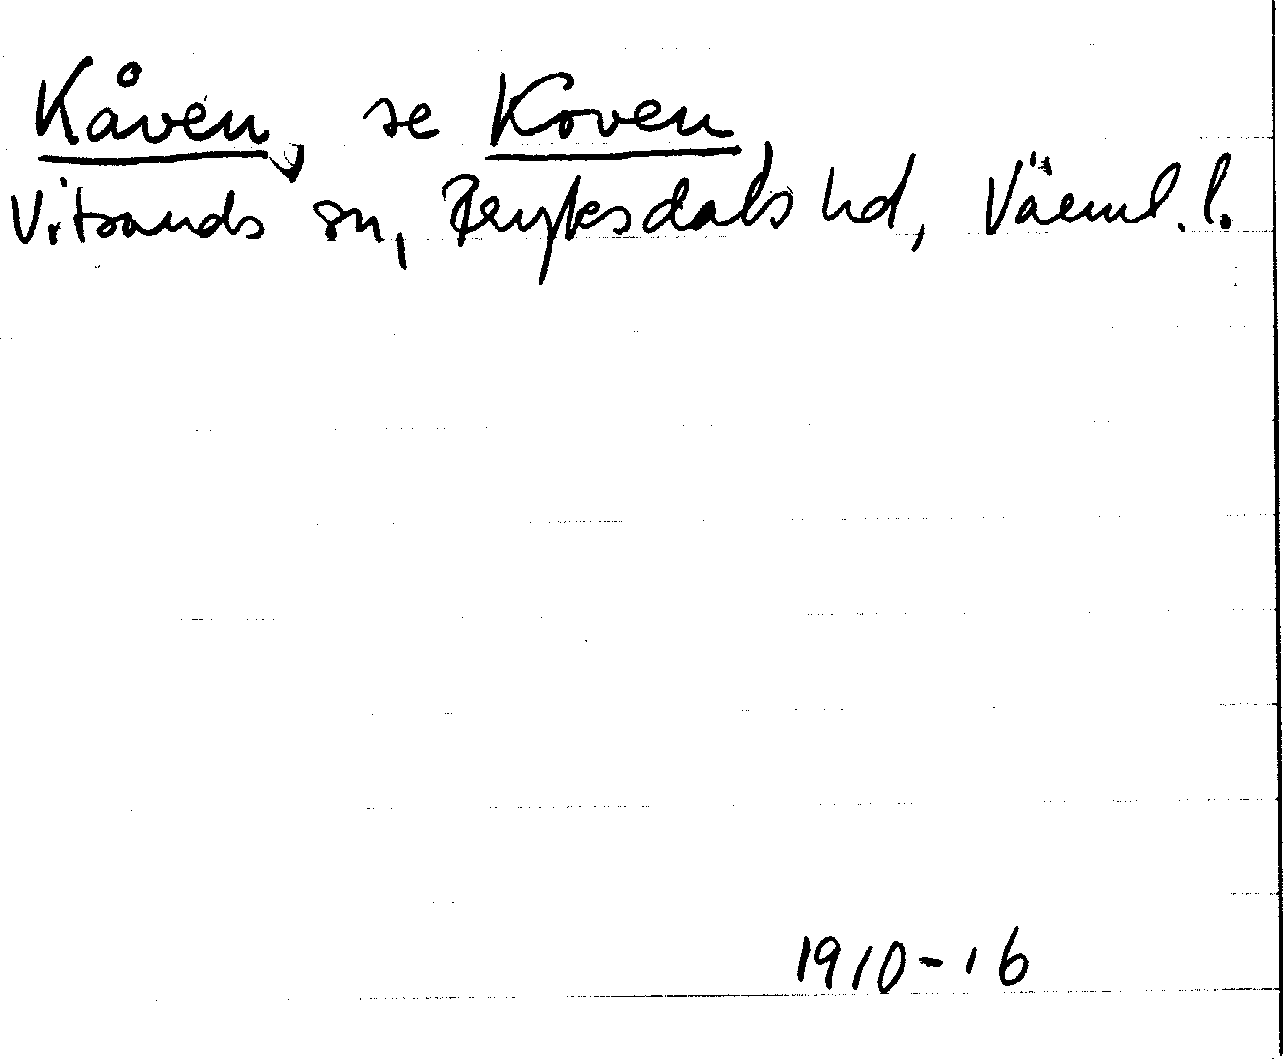 Kåven, se Koven,
Vitsands sn, Fryksdals hd, Värml. l.
1910-16